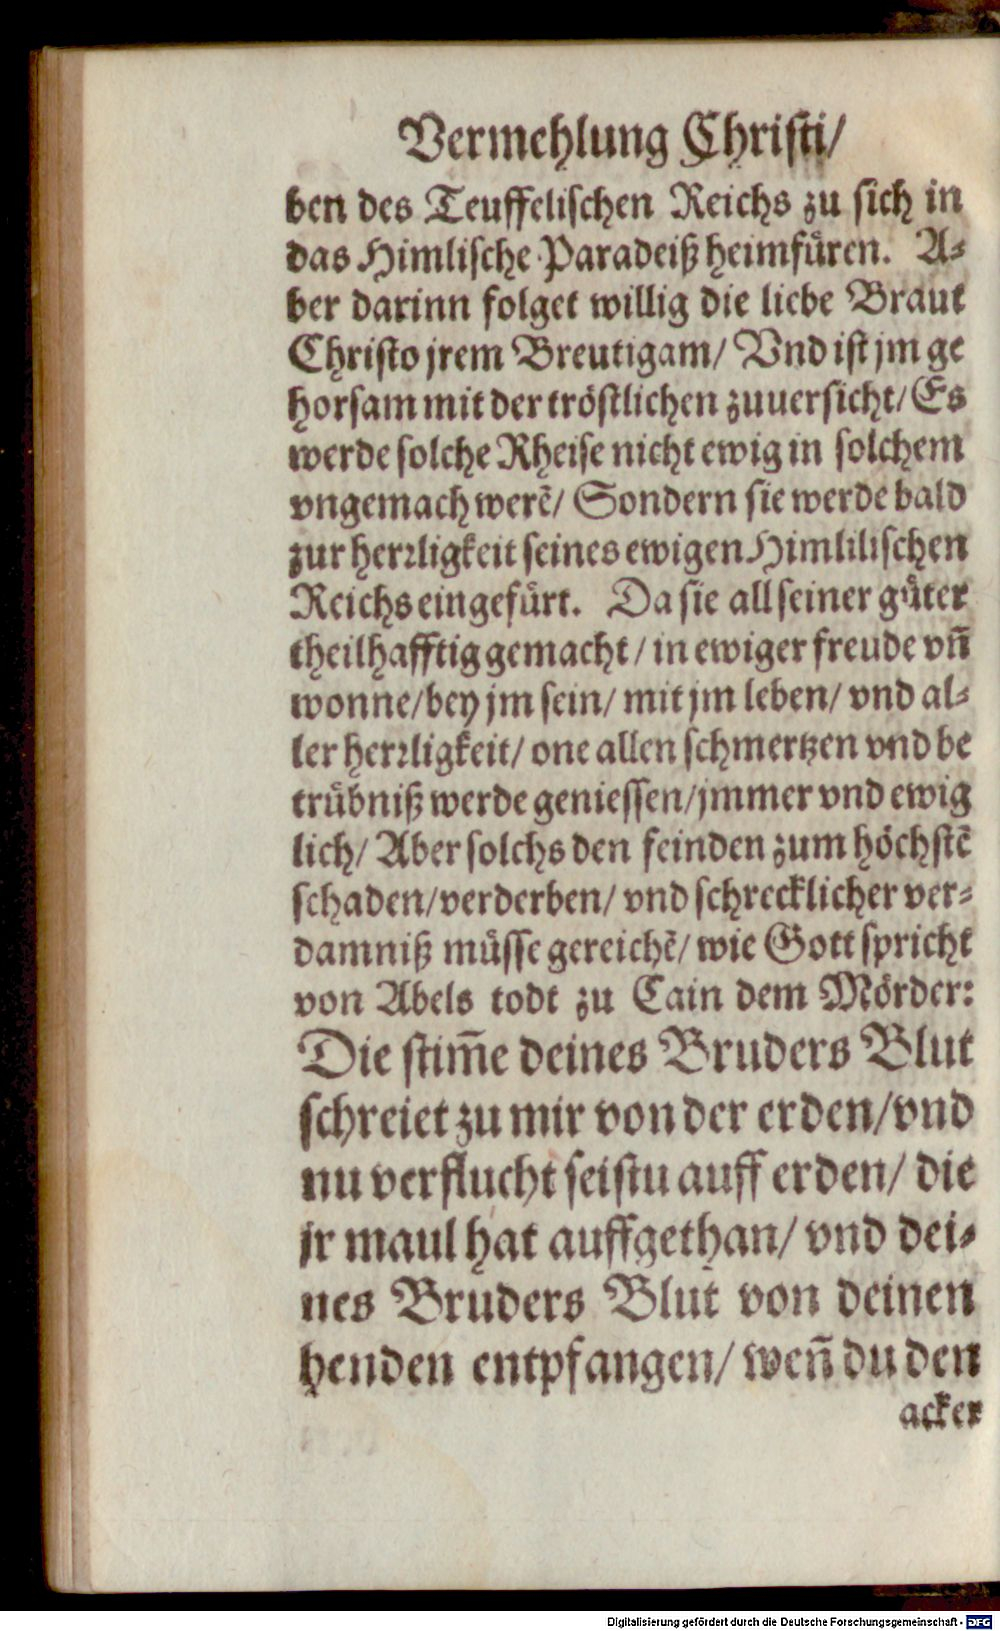 Vermehlung Christi/
ben des Teuffelischen Reichs zu sich in
das Himlische Paradeiß heimfüren. A-
ber darinn folget willig die liebe Braut
Christo jrem Breutigam/ Vnd ist jm ge
horsam mit der tröstlichen zuuersicht/ Es
werde solche Rheise nicht ewig in solchem
vngemach werē/ Sondern sie werde bald
zur herꝛligkeit seines ewigen Himlilischen
Reichs eingefürt. Da sie all seiner güter
theilhafftig gemacht/ in ewiger freude vn̄
wonne/ bey jm sein/ mit jm leben/ vnd al-
ler herꝛligkeit/ one allen schmertzen vnd be
trübniß werde geniessen/ jmmer vnd ewig
lich/ Aber solchs den feinden zum höchstē
schaden/ verderben/ vnd schrecklicher ver-
damniß müsse gereichē/ wie Gott spricht
von Abels todt zu Cain dem Mörder:
Die stim̄e deines Bruders Blut
schreiet zu mir von der erden/ vnd
nu verflucht seistu auff erden/ die
jr maul hat auffgethan/ vnd dei-
nes Bruders Blut von deinen
henden entpfangen/ wen̄ du den
acker
Digitalisierung gefördert durch die Deutsche Forschungsgemeinschaft - DFG